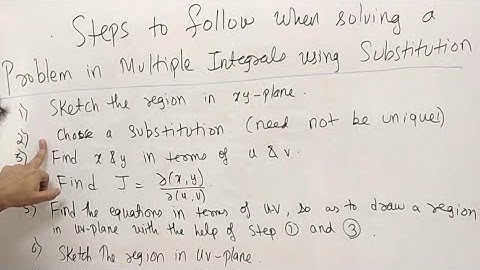 Steps to follow when solving a
Problem in Multiple Integrals using Substitution
1) Sketch the region in xy-plane.
2) Choose a substitution. (need not be unique!)
3) Find x & y in terms of u & v.
Find J = ∂(x,y)/∂(u,v).
5) Find the equations in terms of uv, so as to draw a region
in uv-plane with the help of step ① and ③.
6) Sketch The region in uv-plane.